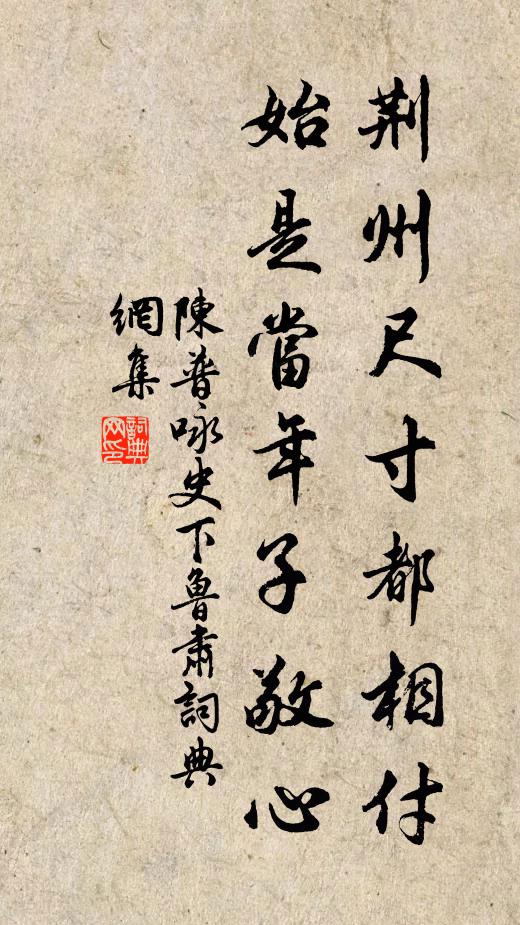 荆州尺寸都相付
始是當年子敬心
陳普咏史下魯肅詞典
網集
詞典網印